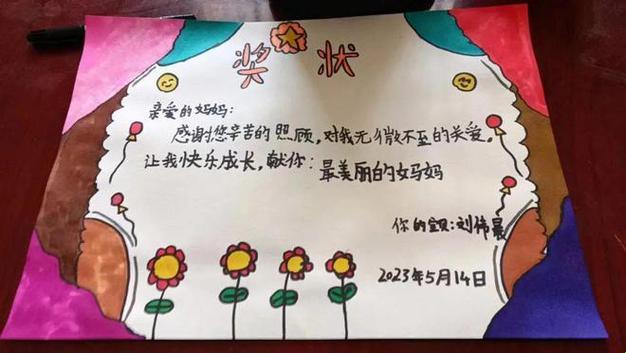 奖状
亲爱的妈妈：
感谢您辛苦的照顾，对我无微不至的关爱，
让我快乐成长，献你：最美丽的女妈妈
你的宝贝：刘伟晨
2023年5月14日